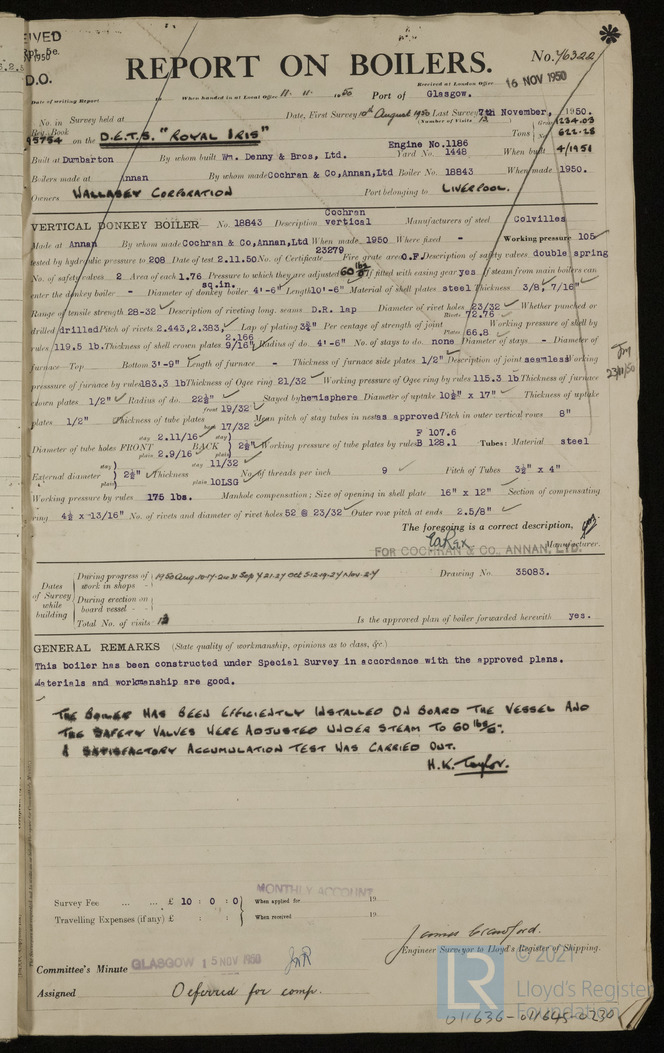 IVED
1950
D.O.
REPORT ON BOILERS.
No. 76322
Received at London Office 16 NOV 1950
Date of writing Report 19 When handed in at Local Office 11. 11. 1950 Port of Glasgow.
No. in Survey held at Date, First Survey 10th August 1950 Last Survey 7th November, 1950.
Reg. Book (Number of Visits 13
95754 on the D.E.T.S. "ROYAL IRIS" Tons Gross 1234.03 Net 622.28
Engine No.1186
Built at Dumbarton By whom built Wm. Denny & Bros, Ltd. Yard No. 1448 When built 4/1951
Boilers made at Annan By whom made Cochran & Co,Annan,Ltd Boiler No. 18843 When made 1950.
Owners WALLASEY CORPORATION Port belonging to LIVERPOOL.
VERTICAL DONKEY BOILER No. 18843 Description Cochran vertical Manufacturers of steel Colvilles
Made at Annan By whom made Cochran & Co,Annan,Ltd When made 1950 Where fixed - Working pressure 105
tested by hydraulic pressure to 208 Date of test 2.11.50 No. of Certificate 23279 Fire grate area O.F. Description of safety valves double spring
No. of safety valves 2 Area of each 1.76 sq.in. Pressure to which they are adjusted 60 lbs/□" If fitted with easing gear yes If steam from main boilers can
enter the donkey boiler - Diameter of donkey boiler 4'-6" Length 10'-6" Material of shell plates steel Thickness 3/8" 7/16"
Range of tensile strength 28-32 Description of riveting long. seams D.R. lap Diameter of rivet holes 23/32 Whether punched or
drilled drilled Pitch of rivets 2.443,2.383, 2.166 Lap of plating 3¾" Per centage of strength of joint Rivets 72.76 Plates 66.8 Working pressure of shell by
rules 119.5 lb. Thickness of shell crown plates 9/16" Radius of do. 4'-6" No. of stays to do. none Diameter of stays - Diameter of
furnace—Top Bottom 3'-9" Length of furnace - Thickness of furnace side plates 1/2" Description of joint seamless Working
pressure of furnace by rules 183.3 lb Thickness of Ogee ring 21/32 Working pressure of Ogee ring by rules 115.3 lb Thickness of furnace
crown plates 1/2" Radius of do. 22½" Stayed by hemisphere Diameter of uptake 10½" x 17" Thickness of uptake
plates 1/2" Thickness of tube plates front 19/32 back 17/32 Mean pitch of stay tubes in nests as approved Pitch in outer vertical rows 8"
Diameter of tube holes FRONT stay 2.11/16 plain 2.9/16 BACK stay plain 2½" Working pressure of tube plates by rules F 107.6 B 128.1 Tubes: Material steel
External diameter stay plain 2½" Thickness stay 11/32 plain 10LSG No. of threads per inch 9 Pitch of Tubes 3½" x 4"
Working pressure by rules 175 lbs. Manhole compensation: Size of opening in shell plate 16" x 12" Section of compensating
ring 4½ x 13/16" No. of rivets and diameter of rivet holes 52 @ 23/32 Outer row pitch at ends 2.5/8"
The foregoing is a correct description,
FOR COCHRAN & Co., ANNAN, LTD. Manufacturer.
Dates of Survey while building
During progress of work in shops - -
During erection on board vessel - - -
Total No. of visits 13
Drawing No. 35083.
Is the approved plan of boiler forwarded herewith yes.
GENERAL REMARKS (State quality of workmanship, opinions as to class, &c.)
This boiler has been constructed under Special Survey in accordance with the approved plans.
Materials and workmanship are good.
THE BOILER HAS BEEN EFFICIENTLY INSTALLED ON BOARD THE VESSEL AND
THE SAFETY VALVES WERE ADJUSTED UNDER STEAM TO 60 lbs/□".
A SATISFACTORY ACCUMULATION TEST WAS CARRIED OUT.
H.K. Taylor.
MONTHLY ACCOUNT
Survey Fee ... ... £ 10 : 0 : 0 When applied for 19
Travelling Expenses (if any) £ : : When received 19
James Crawford.
Engineer Surveyor to Lloyd's Register of Shipping.
Committee's Minute GLASGOW 15 NOV 1950
Assigned Deferred for comp.
© 2021
Lloyd's Register
Foundation
LR
011636-011645-0230